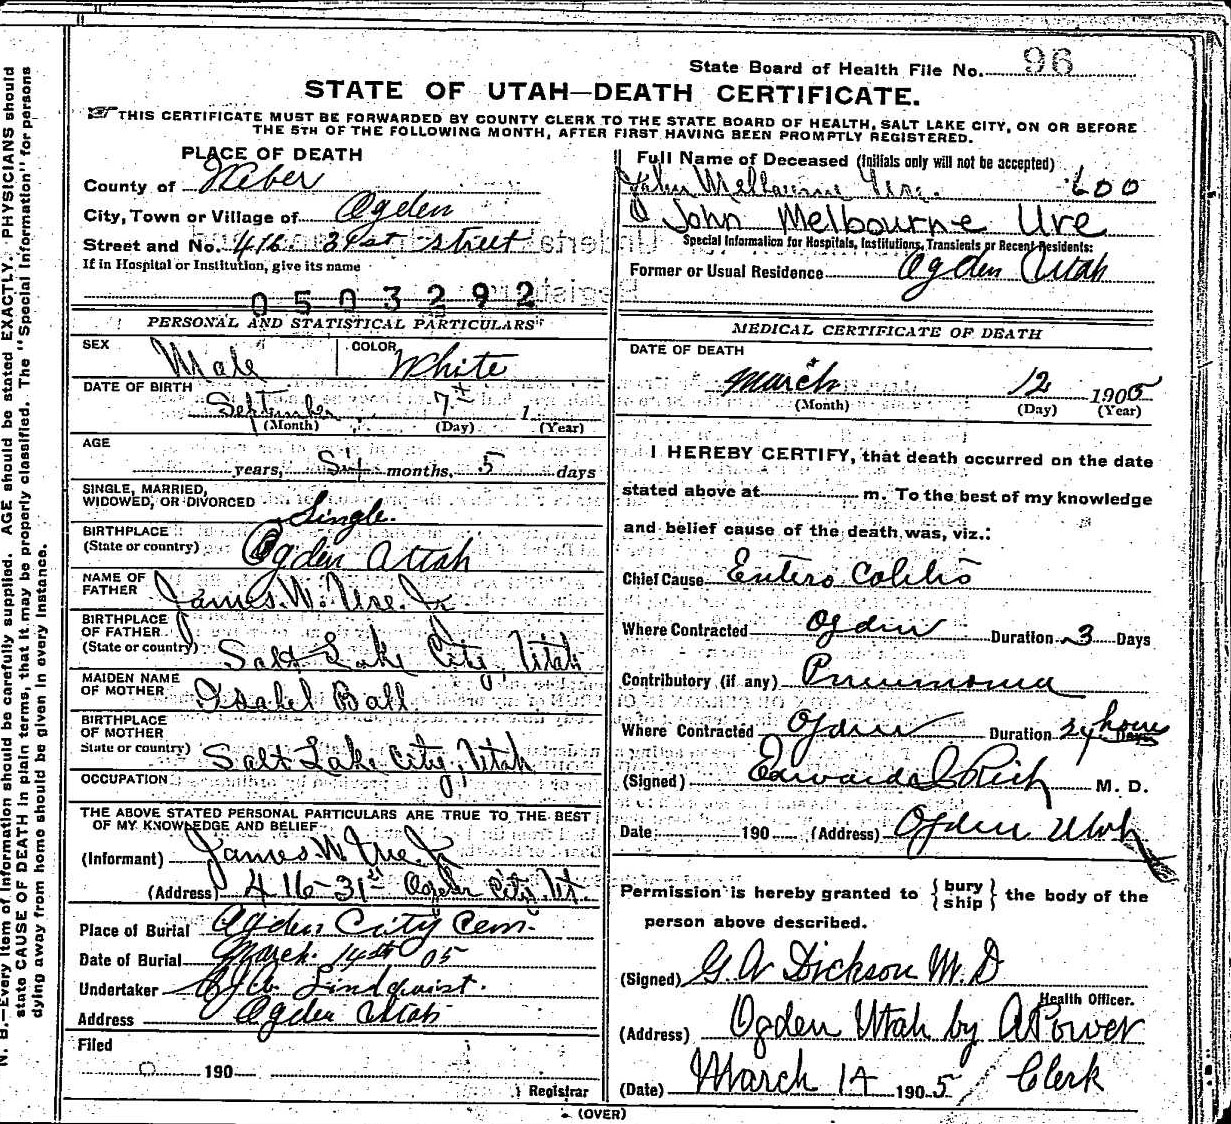 State Board of Health File No. 96
STATE OF UTAH—DEATH CERTIFICATE.
THIS CERTIFICATE MUST BE FORWARDED BY COUNTY CLERK TO THE STATE BOARD OF HEALTH, SALT LAKE CITY, ON OR BEFORE
THE 5TH OF THE FOLLOWING MONTH, AFTER FIRST HAVING BEEN PROMPTLY REGISTERED.
PLACE OF DEATH
County of Weber
City, Town or Village of Ogden
Street and No. 416 31st street
If in Hospital or Institution, give its name
0503292
PERSONAL AND STATISTICAL PARTICULARS
SEX Male COLOR White
DATE OF BIRTH
September 7th 1
(Month) (Day) (Year)
AGE
years, months, 5 days
SINGLE, MARRIED,
WIDOWED, OR DIVORCED Single.
BIRTHPLACE
(State or country) Ogden Utah
NAME OF
FATHER James. W. Ure. Jr
BIRTHPLACE
OF FATHER
(State or country) Salt Lake City, Utah
MAIDEN NAME
OF MOTHER Isabel Ball
BIRTHPLACE
OF MOTHER
State or country) Salt Lake City, Utah
OCCUPATION
THE ABOVE STATED PERSONAL PARTICULARS ARE TRUE TO THE BEST
OF MY KNOWLEDGE AND BELIEF
(Informant) James. W. Ure. Jr
(Address) 416-31st Ogden City. Ut.
Place of Burial Ogden City Cem.
Date of Burial March. 14th 05
Undertaker Lindquist.
Address Ogden Utah
Filed
190
Registrar
(OVER)
Full Name of Deceased (Initials only will not be accepted)
John Melbourne Ure. 600
John Melbourne Ure
Special Information for Hospitals, Institutions, Transients or Recent Residents:
Former or Usual Residence Ogden Utah
MEDICAL CERTIFICATE OF DEATH
DATE OF DEATH
March 12 1905
(Month) (Day) (Year)
I HEREBY CERTIFY, that death occurred on the date
stated above at m. To the best of my knowledge
and belief cause of the death was, viz.:
Chief Cause Entero Colitis
Where Contracted Ogden Duration 3 Days
Contributory (if any) Pneumonia
Where Contracted Ogden Duration 24 hours Days
(Signed) Edward I Rich M. D.
Date 190 (Address) Ogden Utah
Permission is hereby granted to { bury ship } the body of the
person above described.
(Signed) G. W Dickson M. D
Health Officer.
(Address) Ogden Utah by A Power
(Date) March 14 1905 / Clerk
N. B.—Every item of information should be carefully supplied. AGE should be stated EXACTLY. PHYSICIANS should
state CAUSE OF DEATH in plain terms, that it may be properly classified. The "Special Information" for persons
dying away from home should be given in every instance.